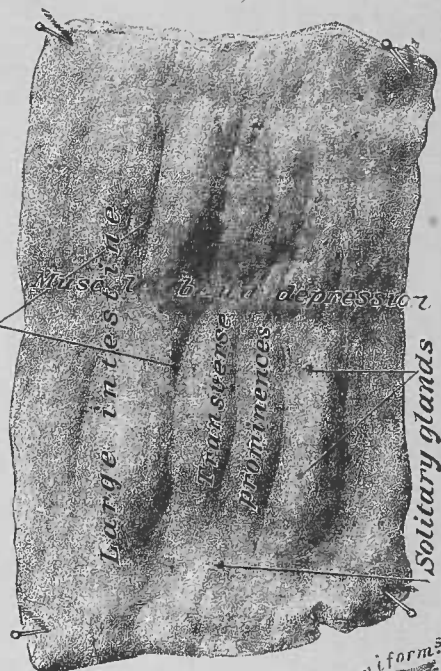 Large intestine
depression
Transverse
prominences
Solitary glands
iforms